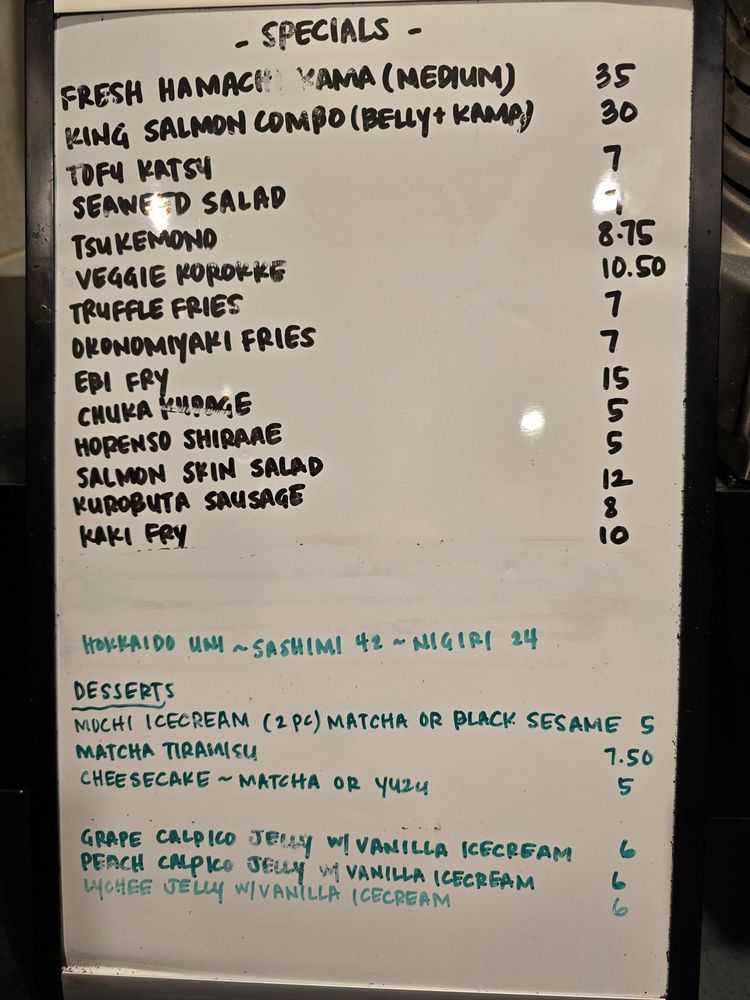 - SPECIALS -
FRESH HAMACHI KAMA (MEDIUM) 35
KING SALMON COMBO (BELLY + KAMA) 30
TOFU KATSU 7
SEAWEED SALAD 7
TSUKEMONO 8.75
VEGGIE KOROKKE 10.50
TRUFFLE FRIES 7
OKONOMIYAKI FRIES 7
EBI FRY 15
CHUKA 5
HORENSO SHIRAAE 5
SALMON SKIN SALAD 12
KUROBUTA SAUSAGE 8
KAKI FRY 10
HOKKAIDO UNI ~ SASHIMI 42 ~ NIGIRI 24
DESSERTS
MOCHI ICECREAM (2 PC) MATCHA OR BLACK SESAME 5
MATCHA TIRAMISU 7.50
CHEESECAKE ~ MATCHA OR YUZU 5
GRAPE CALPICO JELLY W/ VANILLA ICECREAM 6
PEACH CALPICO JELLY W/ VANILLA ICECREAM 6
LYCHEE JELLY W/ VANILLA ICECREAM 6